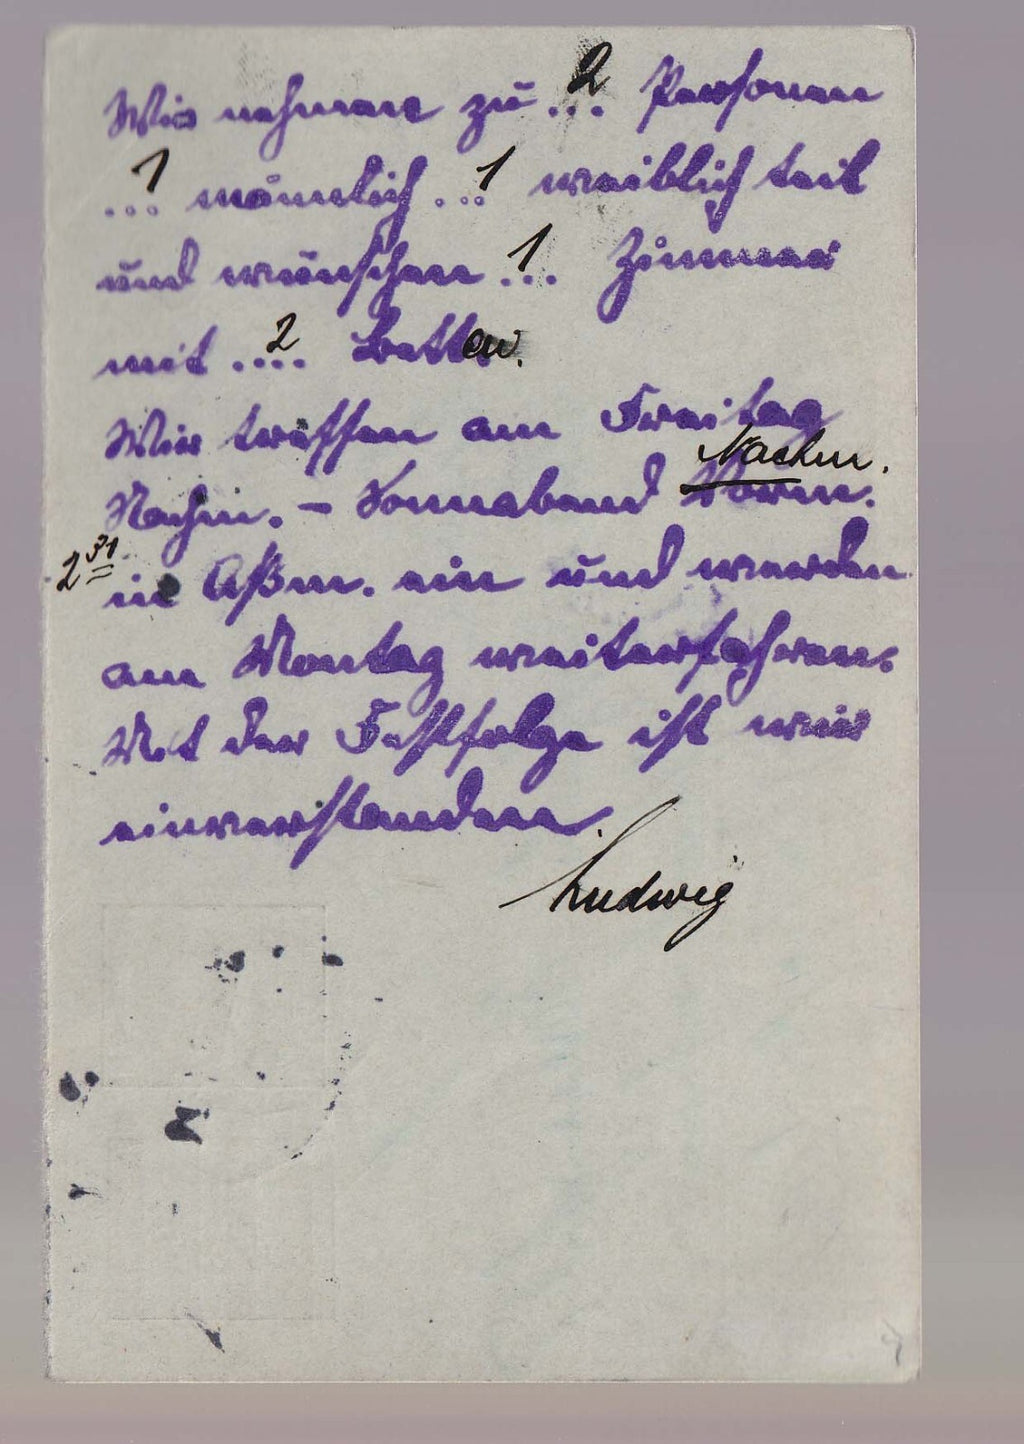 Wir nehmen zu ..2.. Personen
..1.. männlich ..1.. weiblich teil
und wünschen ..1.. Zimmer
mit ..2.. Betten.
Wir treffen am Freitag
Nachm.
Nachm. – Sonnabend Vorm.
2 31
in Aßm. ein und werden
am Montag weiterfahren.
Mit der Festfolge ist wir
einverstanden.
Ludwig